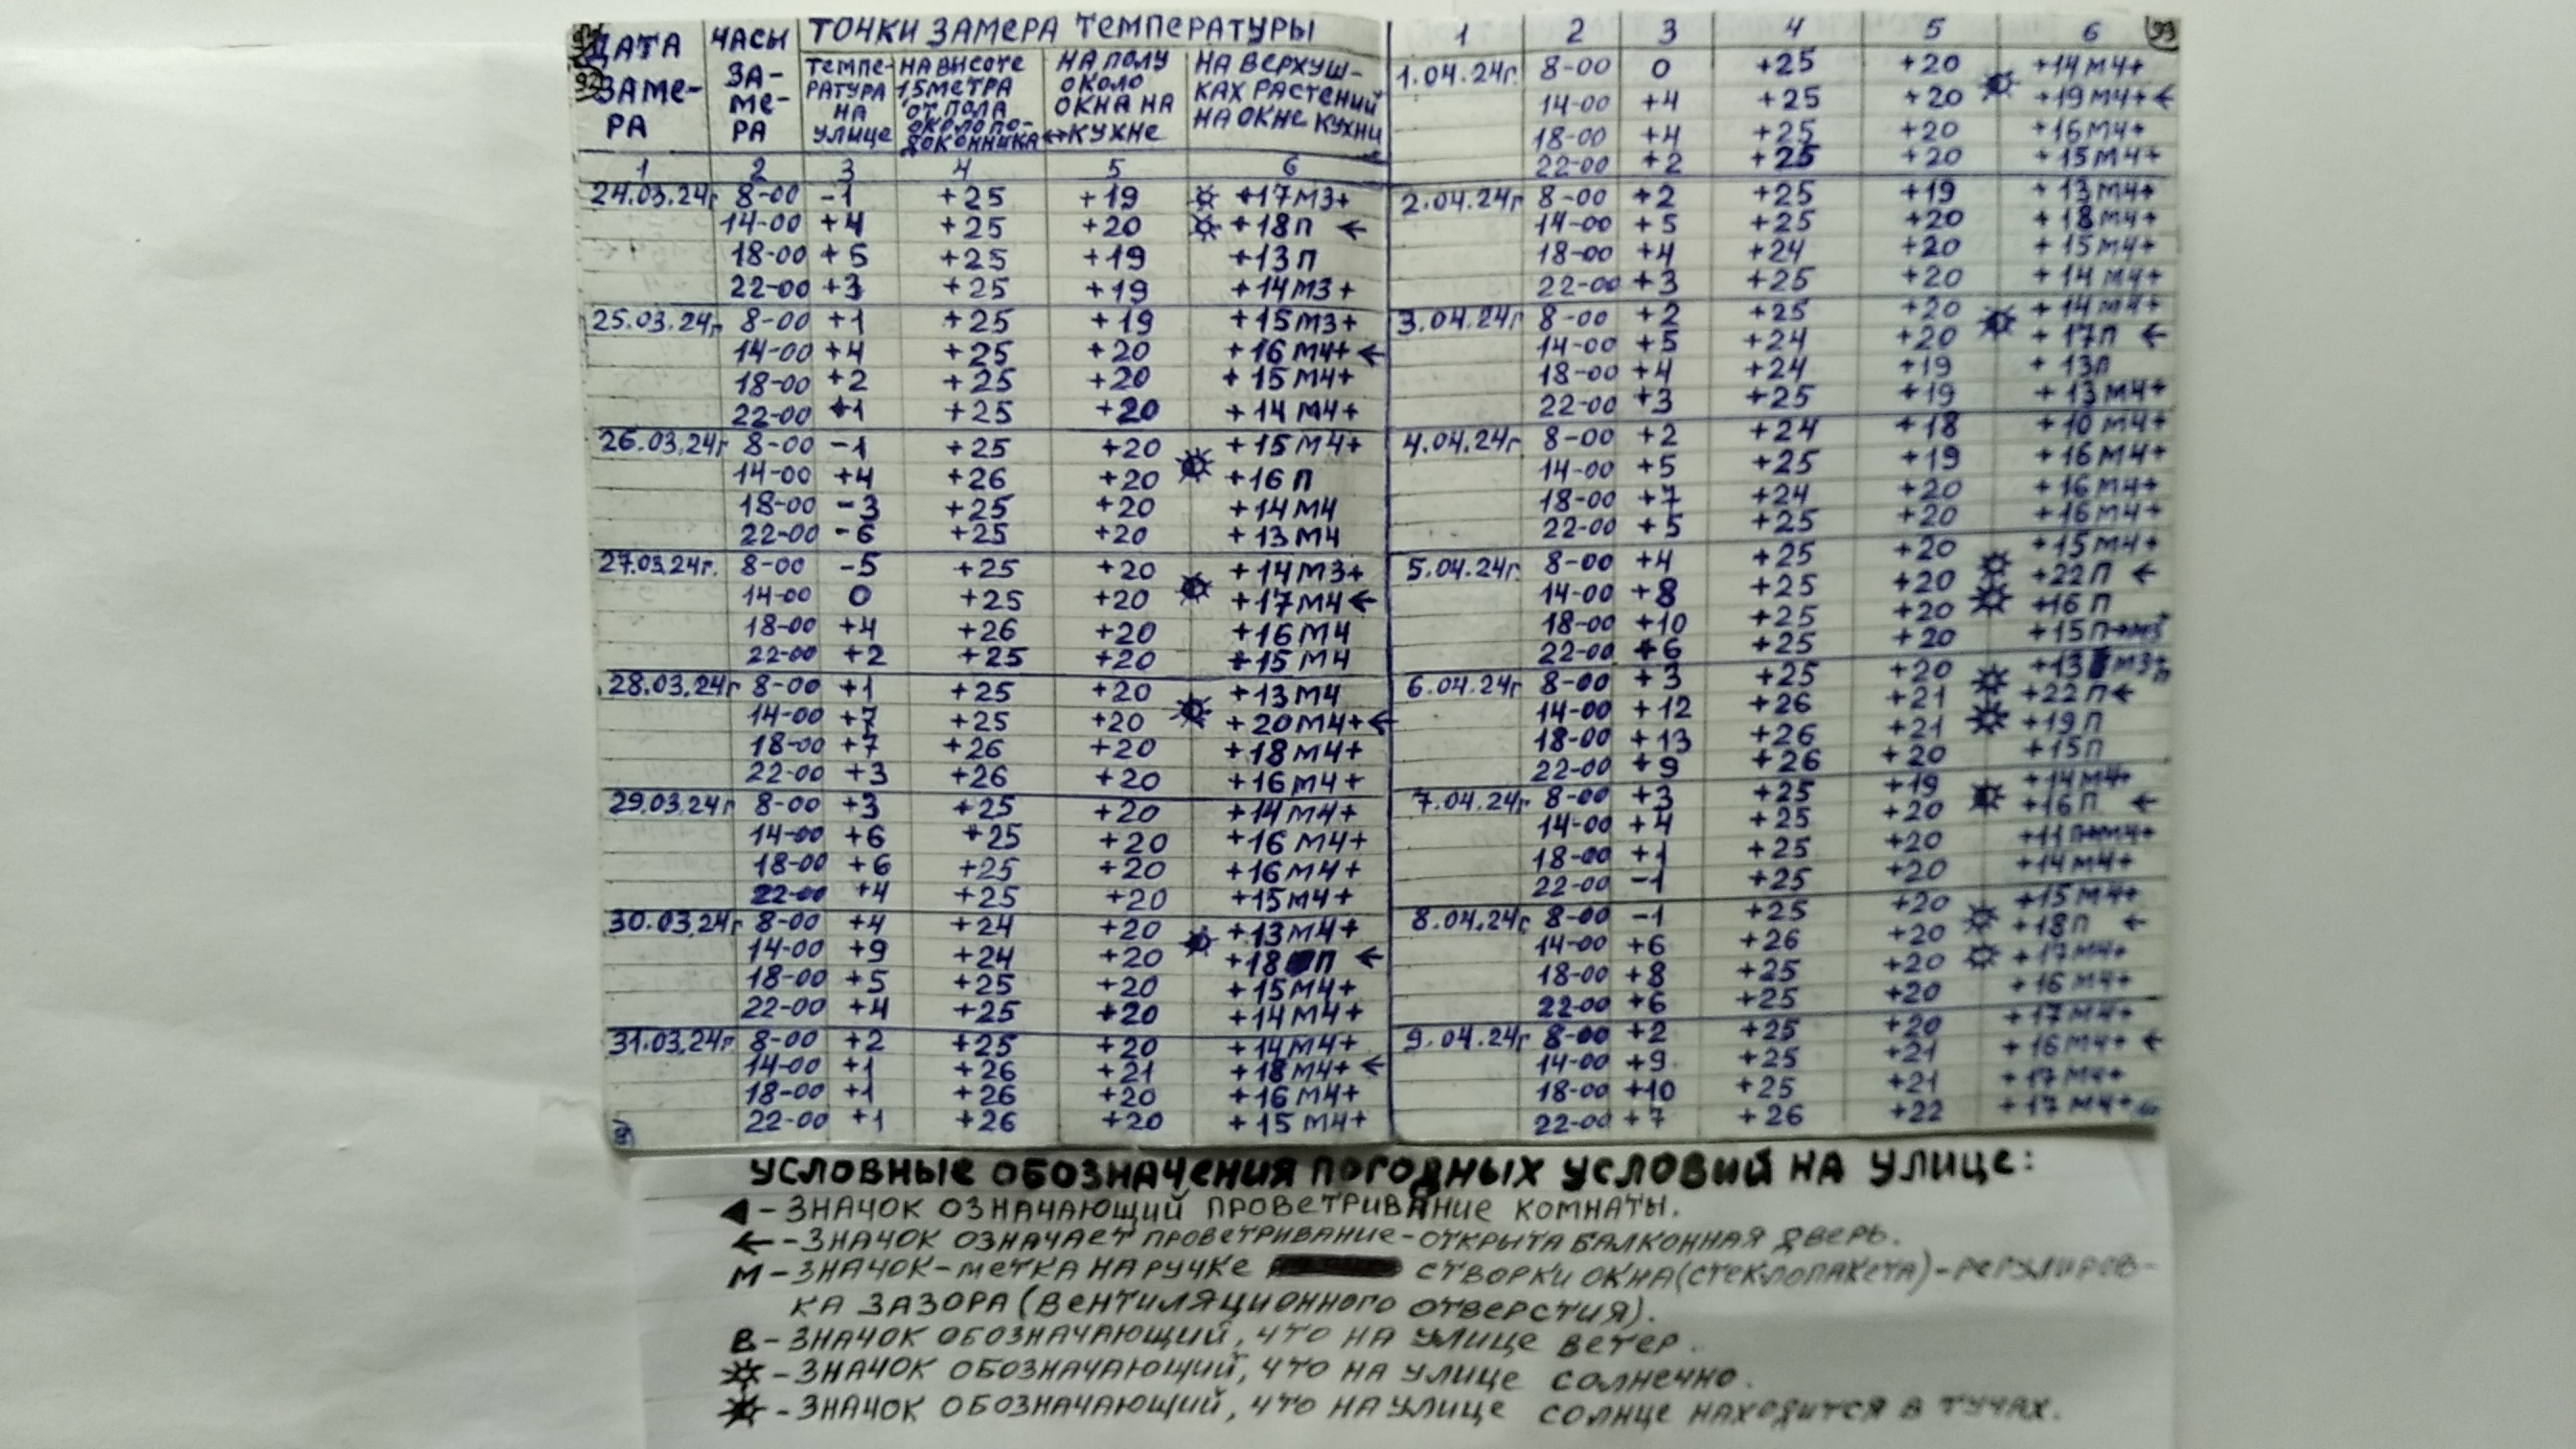 ДАТА ЗАМЕ- РА
ЧАСЫ ЗА- МЕ- РА
ТОЧКИ ЗАМЕРА ТЕМПЕРАТУРЫ
ТЕМПЕ- РАТУРА НА УЛИЦЕ
НА ВЫСОТЕ 15МЕТРА ОТ ПОЛА ОКОЛО ПО- ДОКОННИКА
НА ПОЛУ ОКОЛО ОКНА НА КУХНЕ
НА ВЕРХУШ- КАХ РАСТЕНИЙ НА ОКНЕ КУХНИ
1 2 3 4 5 6
24.03.24г 8-00 -1 +25 +19 +17М3+
14-00 +4 +25 +20 +18П ←
18-00 +5 +25 +19 +13П
22-00 +3 +25 +19 +14М3+
25.03.24г 8-00 +1 +25 +19 +15М3+
14-00 +4 +25 +20 +16М4+ ←
18-00 +2 +25 +20 +15М4+
22-00 +1 +25 +20 +14М4+
26.03.24г 8-00 -1 +25 +20 +15М4+
14-00 +4 +26 +20 +16П
18-00 -3 +25 +20 +14М4
22-00 -6 +25 +20 +13М4
27.03.24г. 8-00 -5 +25 +20 +14М3+
14-00 0 +25 +20 +17М4 ←
18-00 +4 +26 +20 +16М4
22-00 +2 +25 +20 +15М4
28.03.24г 8-00 +1 +25 +20 +13М4
14-00 +7 +25 +20 +20М4+ ←
18-00 +7 +26 +20 +18М4+
22-00 +3 +26 +20 +16М4+
29.03.24г 8-00 +3 +25 +20 +14М4+
14-00 +6 +25 +20 +16М4+
18-00 +6 +25 +20 +16М4+
22-00 +4 +25 +20 +15М4+
30.03.24г 8-00 +4 +24 +20 +13М4+
14-00 +9 +24 +20 +18П ←
18-00 +5 +25 +20 +15М4+
22-00 +4 +25 +20 +14М4+
31.03.24г 8-00 +2 +25 +20 +14М4+
14-00 +1 +26 +21 +18М4+ ←
18-00 +1 +26 +20 +16М4+
22-00 +1 +26 +20 +15М4+
1 2 3 4 5 6 93
1.04.24г. 8-00 0 +25 +20 +14М4+
14-00 +4 +25 +20 +19М4+ ←
18-00 +4 +25 +20 +16М4+
22-00 +2 +25 +20 +15М4+
2.04.24г 8-00 +2 +25 +19 +13М4+
14-00 +5 +25 +20 +18М4+
18-00 +4 +24 +20 +15М4+
22-00 +3 +25 +20 +14М4+
3.04.24г 8-00 +2 +25 +20 +14М4+
14-00 +5 +24 +20 +17П ←
18-00 +4 +24 +19 +13П
22-00 +3 +25 +19 +13М4+
4.04.24г 8-00 +2 +24 +18 +10М4+
14-00 +5 +25 +19 +16М4+
18-00 +7 +24 +20 +16М4+
22-00 +5 +25 +20 +16М4+
5.04.24г. 8-00 +4 +25 +20 +15М4+
14-00 +8 +25 +20 +22П ←
18-00 +10 +25 +20 +16П
22-00 +6 +25 +20 +15П
6.04.24г 8-00 +3 +25 +20 +13 М3+
14-00 +12 +26 +21 +22П ←
18-00 +13 +26 +21 +19П
22-00 +9 +26 +20 +15П
7.04.24г 8-00 +3 +25 +19 +14М4+
14-00 +4 +25 +20 +16П ←
18-00 +1 +25 +20 +11П
22-00 -1 +25 +20 +14М4+
8.04.24г 8-00 -1 +25 +20 +15М4+
14-00 +6 +26 +20 +18П ←
18-00 +8 +25 +20 +17М4+
22-00 +6 +25 +20 +16М4+
9.04.24г 8-00 +2 +25 +20 +17М4+
14-00 +9 +25 +21 +16М4+ ←
18-00 +10 +25 +21 +17М4+
22-00 +7 +26 +22 +17М4+
УСЛОВНЫЕ ОБОЗНАЧЕНИЯ ПОГОДНЫХ УСЛОВИЙ НА УЛИЦЕ:
◄ - ЗНАЧОК ОЗНАЧАЮЩИЙ ПРОВЕТРИВАНИЕ КОМНАТЫ.
← - ЗНАЧОК ОЗНАЧАЕТ ПРОВЕТРИВАНИЕ - ОТКРЫТА БАЛКОННАЯ ДВЕРЬ.
М - ЗНАЧОК - МЕТКА НА РУЧКЕ СТВОРКИ ОКНА (СТЕКЛОПАКЕТА) - РЕГУЛИРОВ-
КА ЗАЗОРА (ВЕНТИЛЯЦИОННОГО ОТВЕРСТИЯ).
В - ЗНАЧОК ОБОЗНАЧАЮЩИЙ, ЧТО НА УЛИЦЕ ВЕТЕР.
- ЗНАЧОК ОБОЗНАЧАЮЩИЙ, ЧТО НА УЛИЦЕ СОЛНЕЧНО.
- ЗНАЧОК ОБОЗНАЧАЮЩИЙ, ЧТО НА УЛИЦЕ СОЛНЦЕ НАХОДИТСЯ В ТУЧАХ.